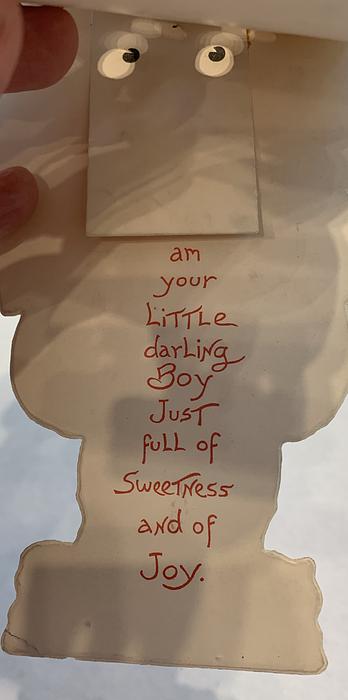 am
your
LiTTLe
darLing
Boy
JusT
fuLL of
SweeTNess
aNd of
Joy.